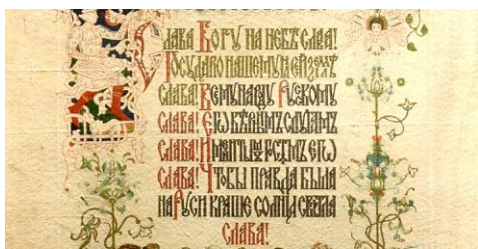 СЛАВА БОГУ НА НЕБѢ СЛАВА!
ГОСУДАРЮ НАШЕМУ НА СЕЙ ЗЕМЛѢ
СЛАВА! ВСЕМУ НАРОДУ РУСКОМУ
СЛАВА! ЕГО ВѢРНЫМЪ СЛУГАМЪ
СЛАВА! ИМЕНИТЫМЪ ГОСТЯМЪ ЕГО
СЛАВА! ЧТОБЫ ПРАВДА БЫЛА
НА РУСИ КРАШЕ СОЛНЦА СВѢТЛА
СЛАВА!